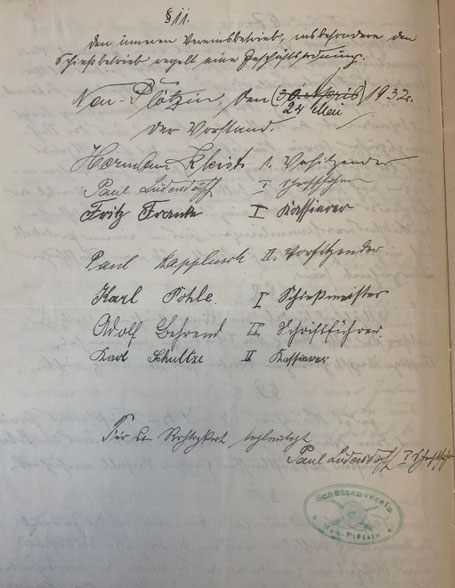 § 11.
Den inneren Vereinsbetrieb, insbesondere den
Schießbetrieb regelt eine Geschäftsordnung.
Neu-Plötzin, den 1932.
24 Mai
Der Vorstand.
Hermann Kleist 1. Vorsitzender
Paul Lüdersdorff I Schriftführer
Fritz Franke I Kassierer
Paul II. Vorsitzender
Karl Pöhle I Schießmeister
Adolf Behrend II Schriftführer
Karl Schultze II Kassierer
Für die Richtigkeit beglaubigt
Paul Lüdersdorff I Schriftführer
Schützenverein
Neu-Plötzin